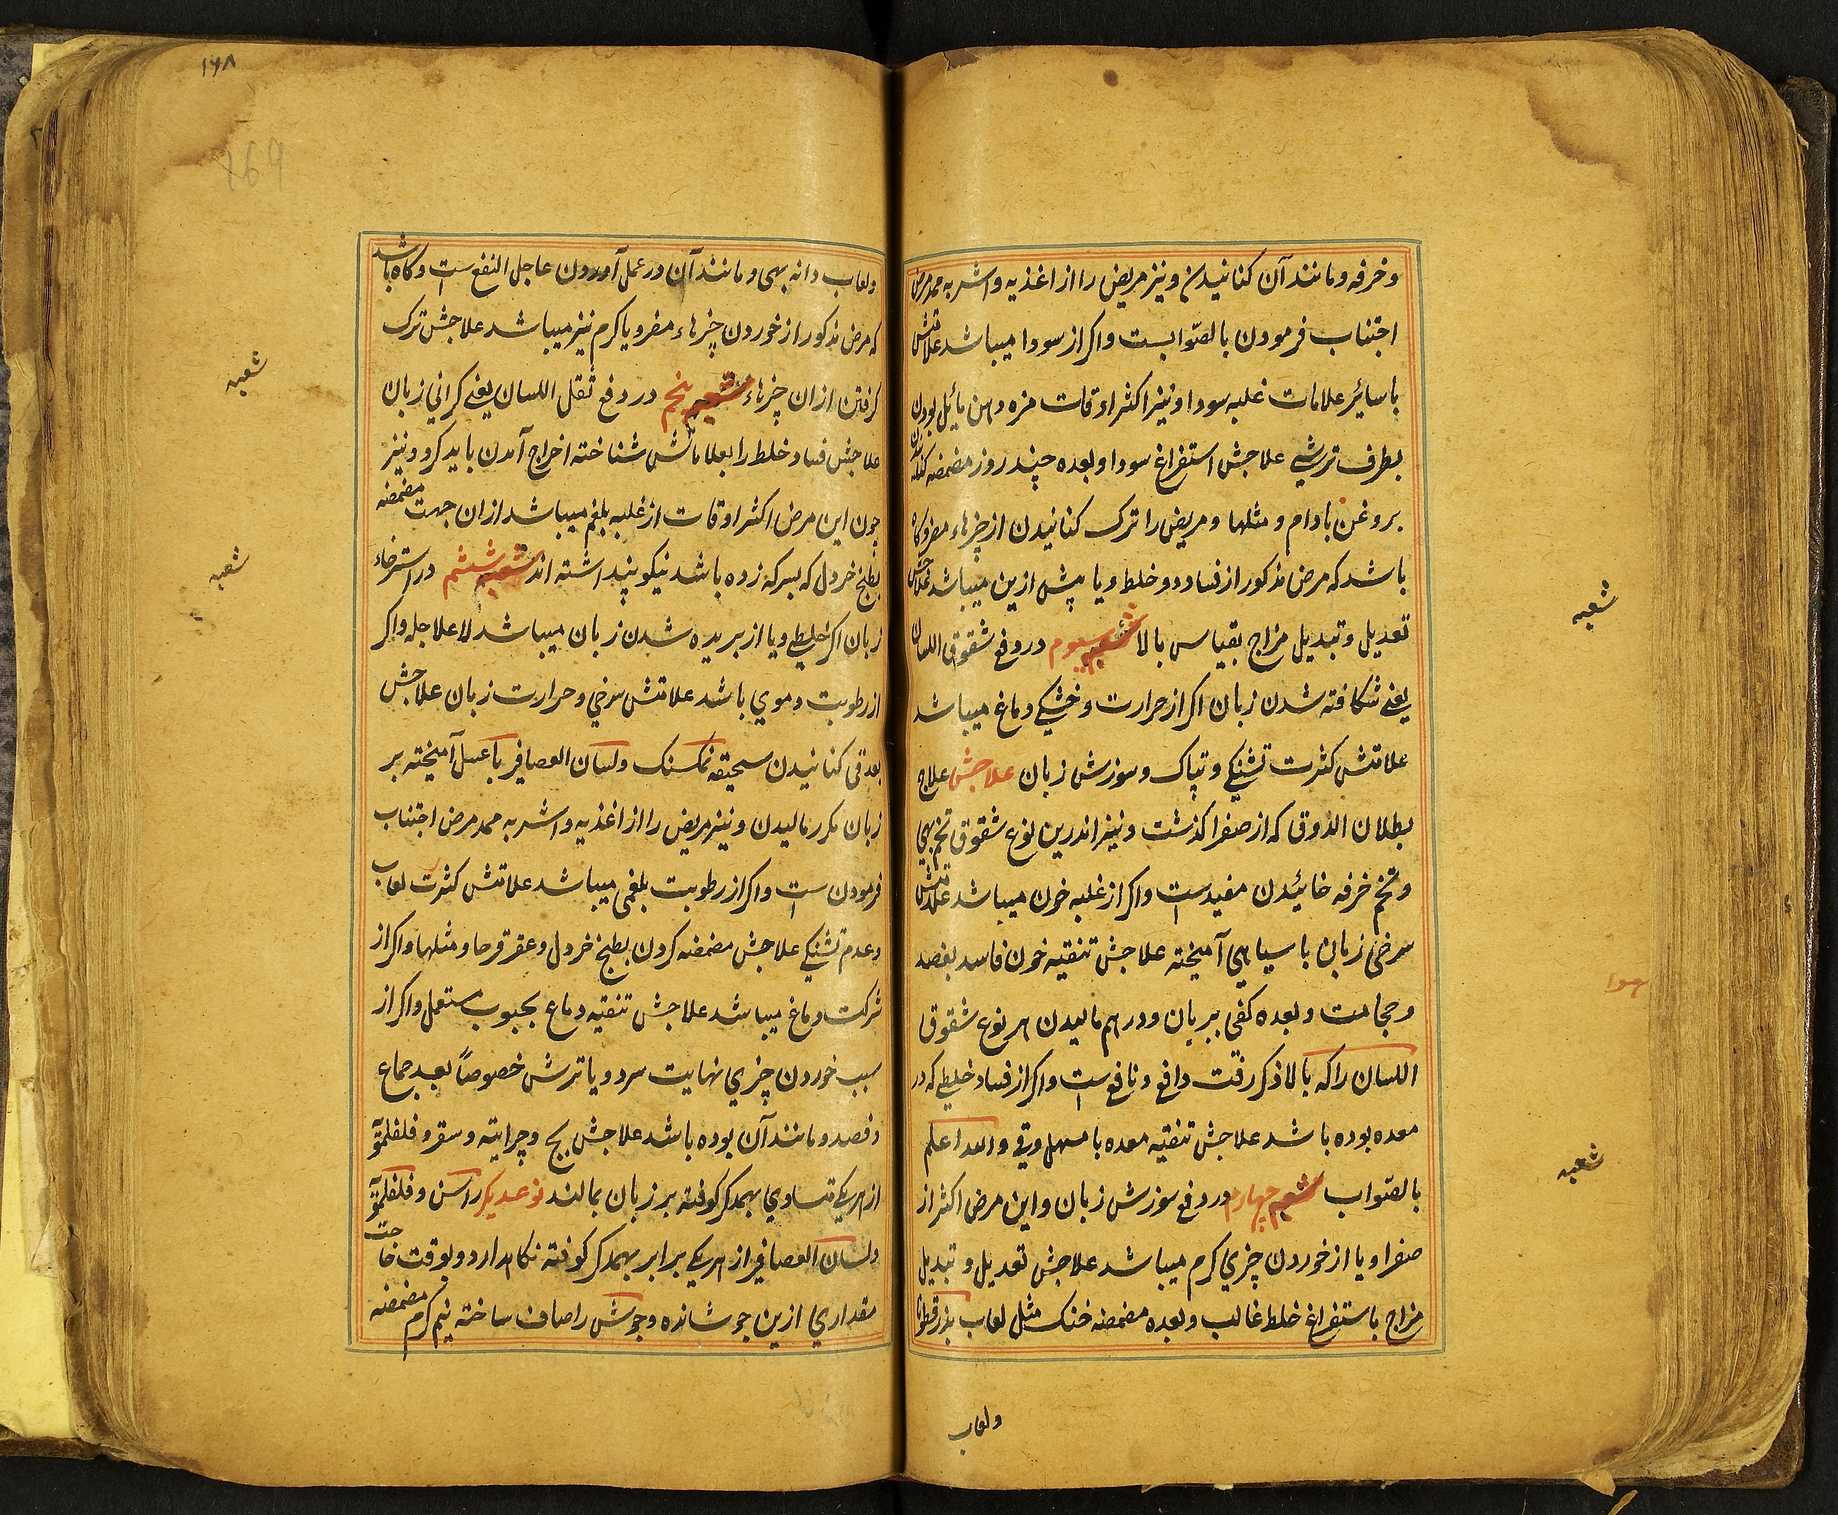 وخرفه ومانند آن کنانیدن ونیز مریض را از اغذیه واشربه ممد مرض
اجتناب فرمودن بالصوابست واکر از سودا میباشد علامتش
با سایر علامات غلبه سودا ونیز اکثر اوقات مزه دهن مائل بودن
بطرف ترشی علاجش استفراغ سودا وبعده چند روز مضمضه کنانیدن
بروغن بادام ومثلها ومریض را ترک کنانیدن از چیزهاء مضر وکاه
باشد که مرض مذکور از فساد دو خلط ویا بیش ازین میباشد علاجش
تعدیل وتبدیل مزاج بقیاس بالا شعبه سیوم در دفع شقوق اللسان
یعنے شکافته شدن زبان اکر از حرارت وخشکے دماغ میباشد
علامتش کثرت تشنکے وتپاک وسوزش زبان علاجش علاج
بطلان الذوق که از صفرا کذشت ونیز اندرین نوع شقوق تخم بهی
وتخم خرفه خائیدن مفیدست واکر از غلبه خون میباشد علامتش
سرخی زبان با سیاهی آمیخته علاجش تنقیه خون فاسد بفصد
وحجامت وبعده کفی بریان ودرهم مالیدن هر نوع شقوق
اللسان را که بالا ذکر رفت دافع ونافع است واکر از فساد خلیطے که در
معده بوده باشد علاجش تنقیه معده با مسهل وقے والله اعلم
بالصواب شعبه چهارم در دفع سوزش زبان واین مرض اکثر از
صفرا ویا از خوردن چیزی کرم میباشد علاجش تعدیل وتبدیل
مزاج باستفراغ خلط غالب وبعده مضمضه خنک مثل لعاب بذر قطونا
ولعاب
شعبه
شعبه
۱۶۸
169
ولعاب دانه بهی ومانند آن در عمل آوردن عاجل النفع ست وکاه باشد
که مرض مذکور از خوردن چیزهاء مضر ویا کرم نیز میباشد علاجش ترک
کرفتن ازان چیزهاء شعبه پنجم در دفع ثقل اللسان یعنے کرانی زبان
علاجش فساد خلط را بعلاماتش شناخته اخراج آمدن باید کرد ونیز
چون این مرض اکثر اوقات از غلبه بلغم میباشد ازان جهت مضمضه
بطبخ خردل که بسرکه زده باشد نیکو پنداشته اند شعبه ششم در استرخاء
زبان اکر خلیطے ویا از بریده شدن زبان میباشد لا علاج له واکر
از رطوبت دموی باشد علامتش سرخی وحرارت زبان علاجش
بعد قی کنانیدن سحیقه نمکسنک ولسان العصافیر با عسل آمیخته بر
زبان مکرر مالیدن ونیز مریض را از اغذیه واشربه ممد مرض اجتناب
فرمودن ست واکر از رطوبت بلغمی میباشد علامتش کثرت لعاب
وعدم تشنکے علاجش مضمضه کردن بطبخ خردل وعقرقرحا ومثلها واکر از
شرکت دماغ میباشد علاجش تنقیه دماغ بحبوب مستعمل واکر از
سبب خوردن چیزی نهایت سرد ویا ترش خصوصاً بعد جماع
وفصد ومانند آن بوده باشد علاجش بچ وچرایته وسقر وفلفلمویه
از هریکے تساوی بهمدکر کوفته بر زبان بمالند نوعدیکر راسن وفلفلمویه
ولسان العصافیر از هریکے برابر بهمدکر کوفته نکاهدارد وبوقت حاجت
مقداری ازین جوشانده وجوشش را صاف ساخته نیم کرم مضمضه
شعبه
شعبه